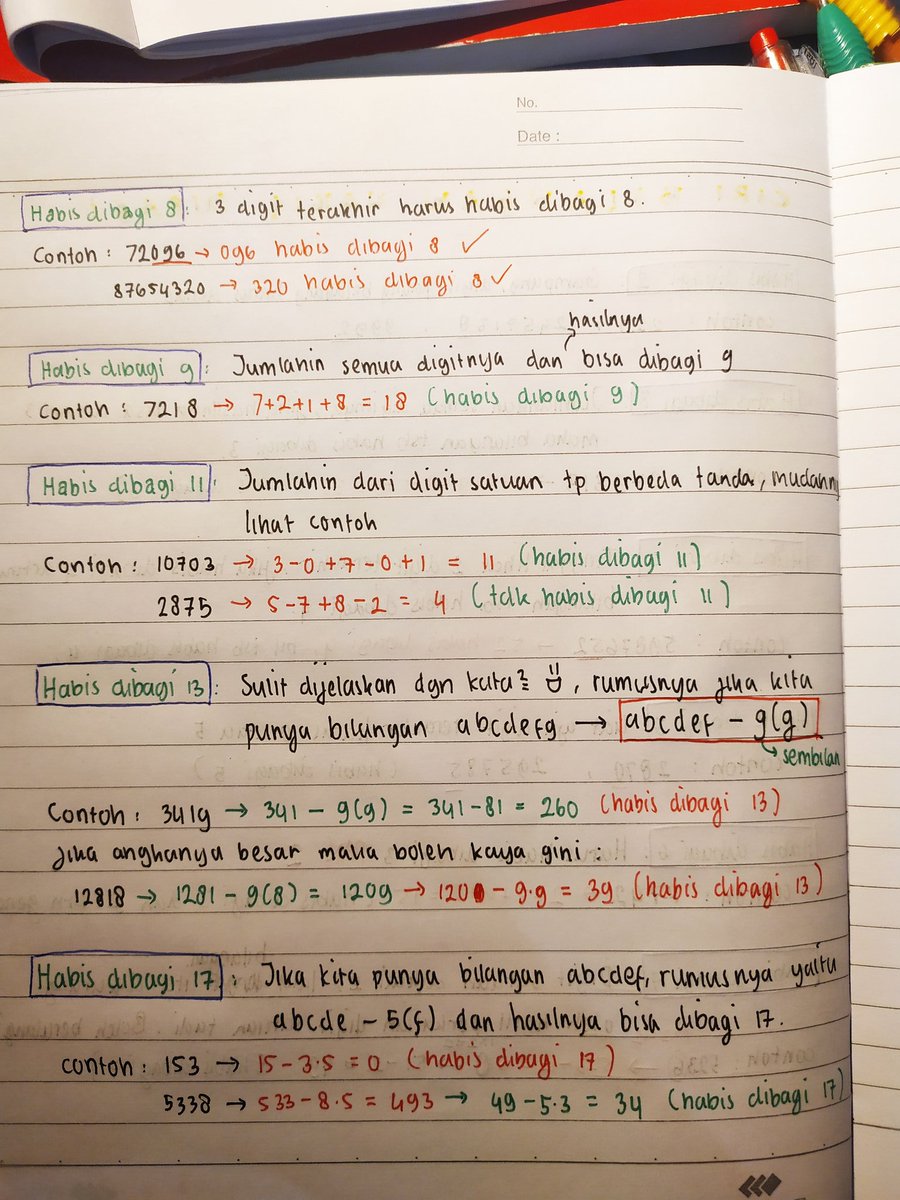 No.
Date :
Habis dibagi 8 : 3 digit terakhir harus habis dibagi 8.
Contoh : 72096 → 096 habis dibagi 8 ✓
87654320 → 320 habis dibagi 8 ✓
hasilnya
Habis dibagi 9 : Jumlahin semua digitnya dan bisa dibagi 9
Contoh : 7218 → 7+2+1+8 = 18 (habis dibagi 9)
Habis dibagi 11 : Jumlahin dari digit satuan tp berbeda tanda, mudahny
lihat contoh
Contoh : 10703 → 3-0+7-0+1 = 11 (habis dibagi 11)
2875 → 5-7+8-2 = 4 (tdk habis dibagi 11)
Habis dibagi 13 : Sulit dijelaskan dgn kata² , rumusnya jika kita
punya bilangan abcdefg → abcdef - 9(g)
sembilan
Contoh : 3419 → 341 - 9(9) = 341-81 = 260 (habis dibagi 13)
Jika angkanya besar maka boleh kaya gini :
12818 → 1281 - 9(8) = 1209 → 120 - 9.9 = 39 (habis dibagi 13)
Habis dibagi 17 : Jika kita punya bilangan abcdef, rumusnya yaitu
abcde - 5(f) dan hasilnya bisa dibagi 17.
Contoh : 153 → 15-3.5 = 0 (habis dibagi 17)
5338 → 533-8.5 = 493 → 49-5.3 = 34 (habis dibagi 17)